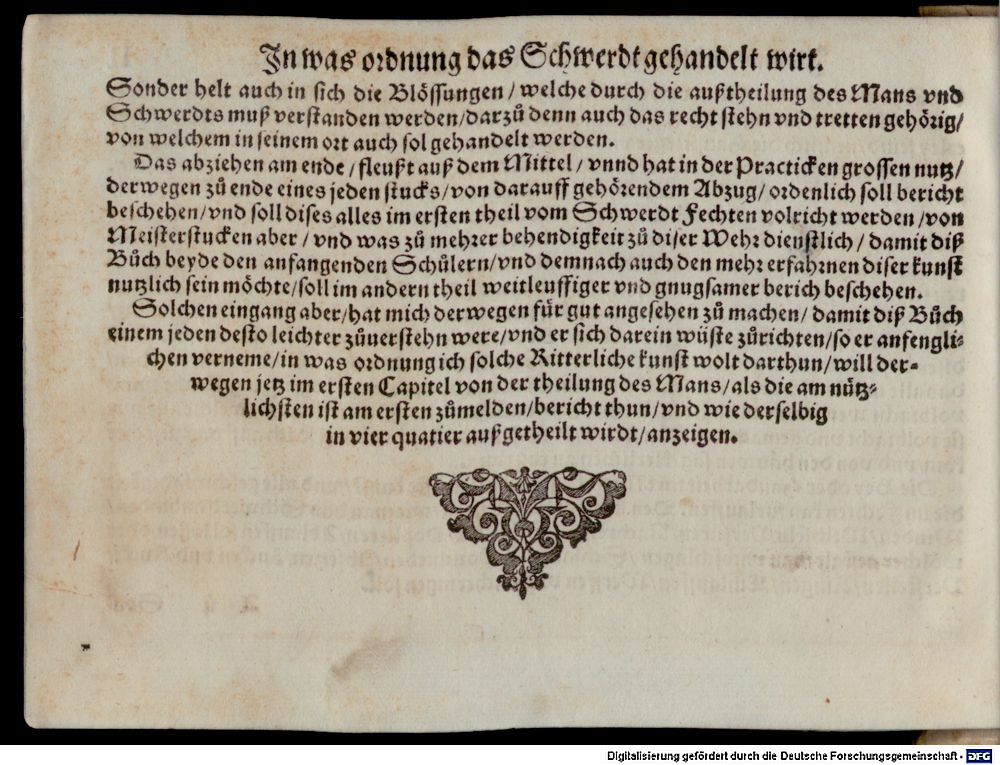 In was ordnung das Schwerdt gehandelt wirt.
Sonder helt auch in sich die Blössungen / welche durch die außtheilung des Mans vnd
Schwerdts muß verstanden werden/darzů denn auch das recht stehn vnd tretten gehörig/
von welchem in seinem ort auch sol gehandelt werden.
Das abziehen am ende / fleußt auß dem Mittel / vnnd hat in der Practicken grossen nutz/
derwegen zů ende eines jeden stucks/von darauff gehörendem Abzug/ ordenlich soll bericht
beschehen/vnd soll dises alles im ersten theil vom Schwerdt Fechten volricht werden /von
Meisterstucken aber / vnd was zů mehrer behendigkeit zů diser Wehr dienstlich / damit diß
Bůch beyde den anfangenden Schůlern/vnd demnach auch den mehr erfahrnen diser kunst
nutzlich sein möchte/soll im andern theil weitleuffiger vnd gnugsamer berich beschehen.
Solchen eingang aber/hat mich derwegen für gut angesehen zů machen/ damit diß Bůch
einem jeden desto leichter zůuerstehn were/vnd er sich darein wüste zůrichten/so er anfengli-
chen verneme/in was ordnung ich solche Ritterliche kunst wolt darthun/will der-
wegen jetz im ersten Capitel von der theilung des Mans/als die am nütz-
lichsten ist am ersten zůmelden/bericht thun/vnd wie derselbig
in vier quatier außgetheilt wirdt/anzeigen.
Digitalisierung gefördert durch die Deutsche Forschungsgemeinschaft - DFG